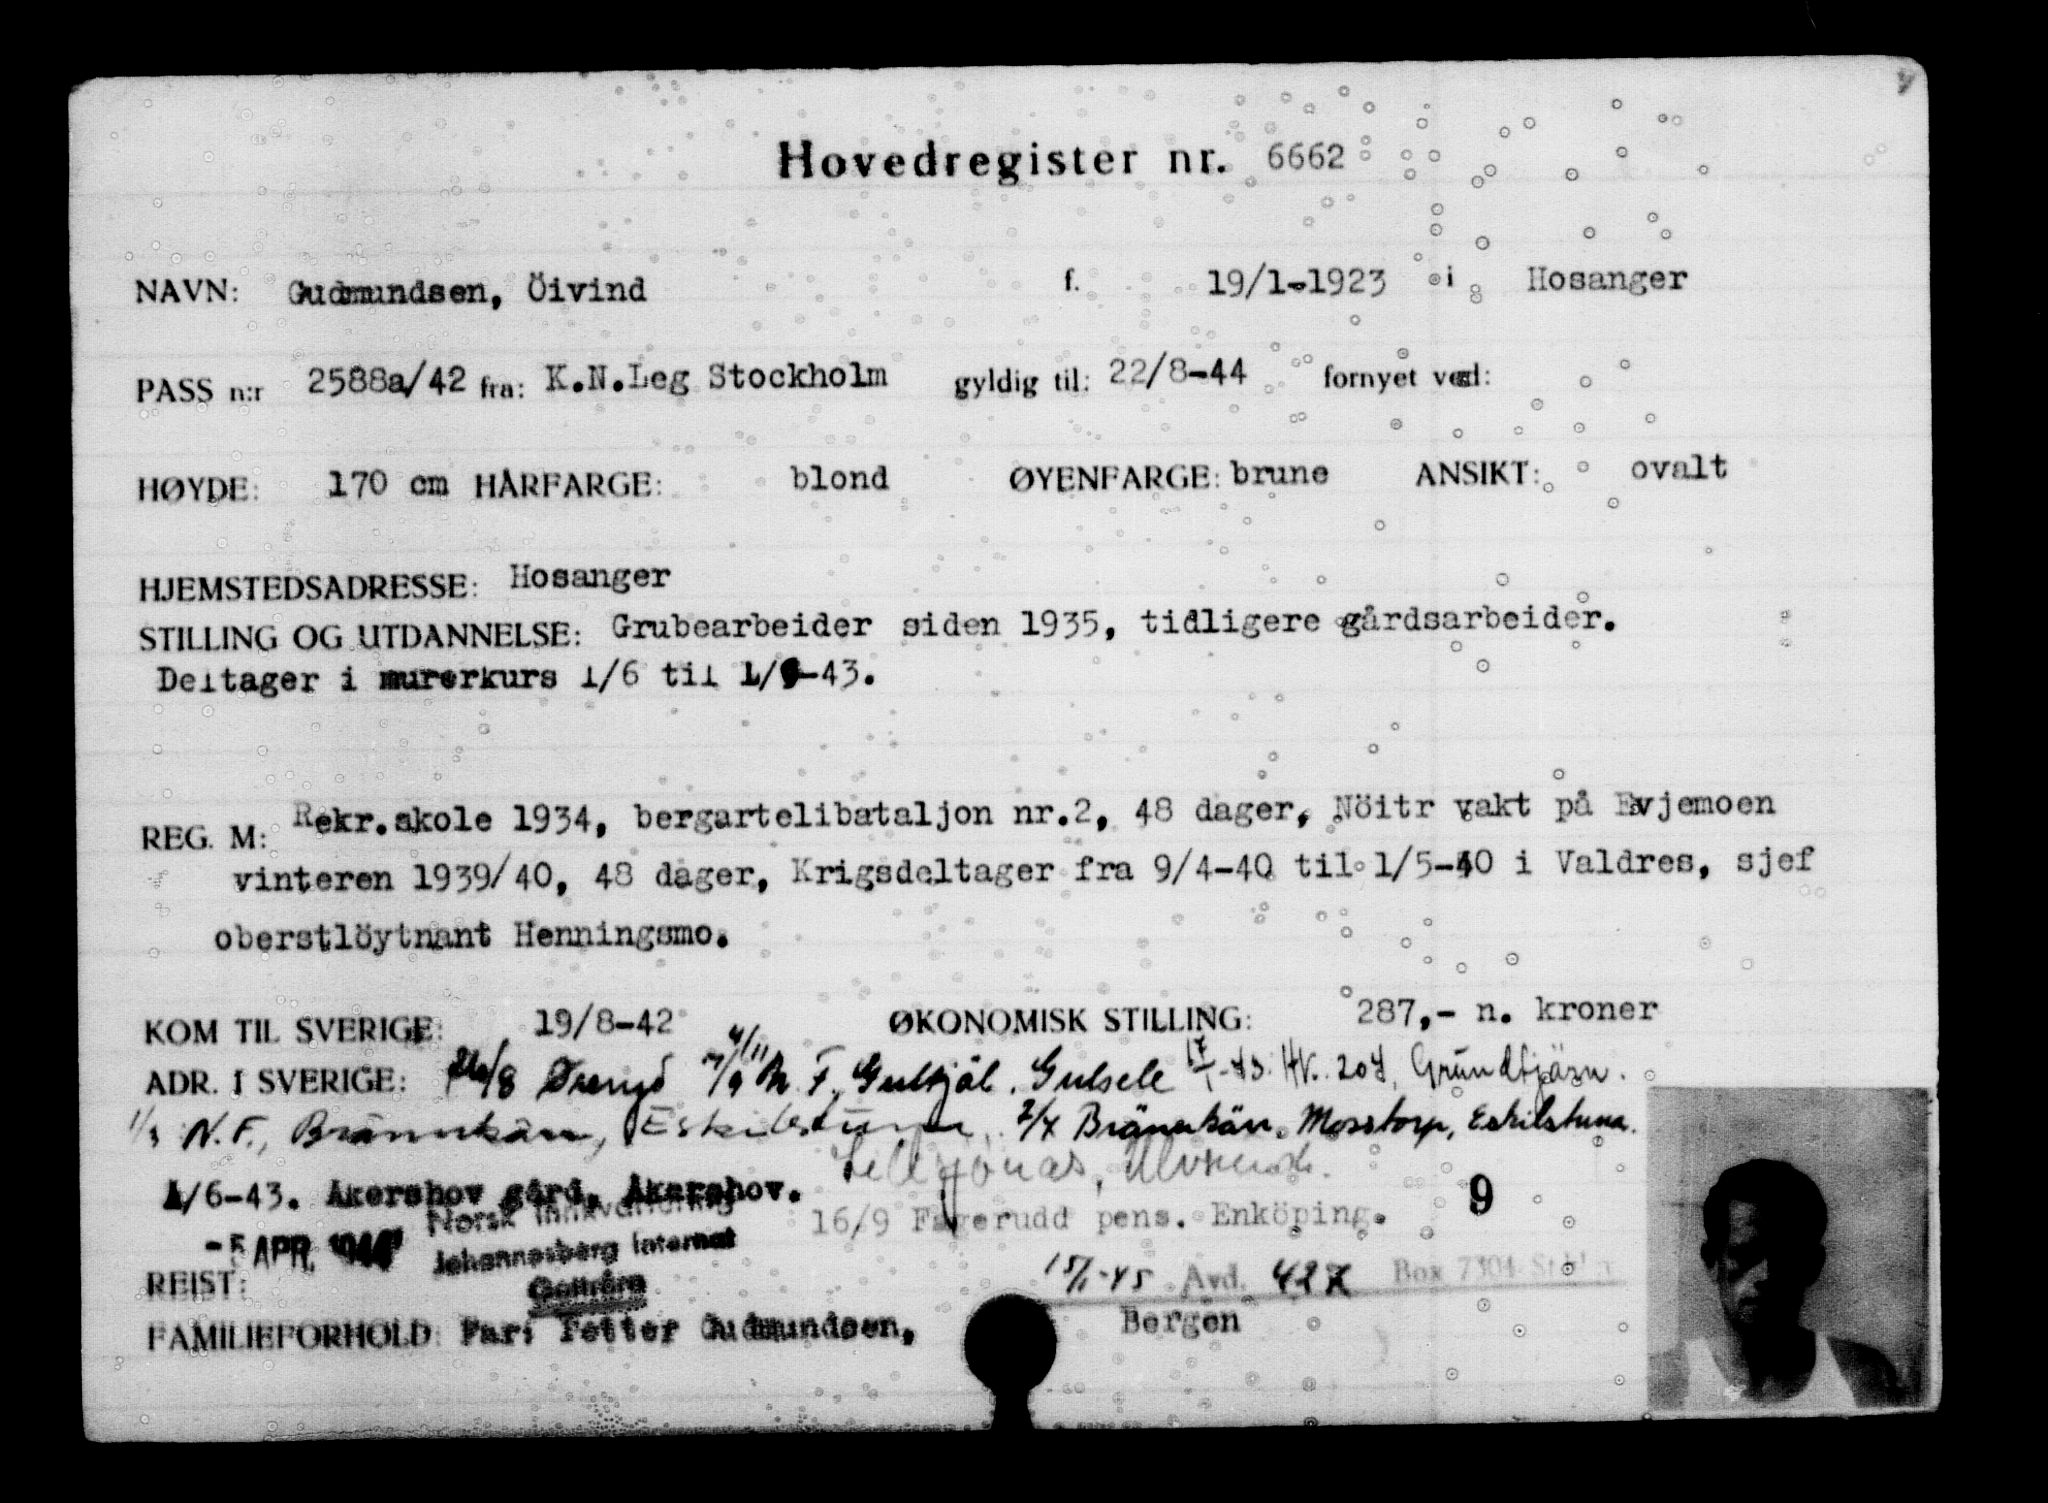 Hovedregister nr. 6662
NAVN: Gudmundsen, Öivind f. 19/1-1923 i Hosanger
PASS n:r 2588a/42 fra: K.N.Leg Stockholm gyldig til: 22/8-44 fornyet ved:
HØYDE: 170 cm HÅRFARGE: blond ØYENFARGE: brune ANSIKT: ovalt
HJEMSTEDSADRESSE: Hosanger
STILLING OG UTDANNELSE: Grubearbeider siden 1935, tidligere gårdsarbeider.
Deltager i murerkurs 1/6 til 1/9-43.
REG. M: Rekr.skole 1934, bergartelibataljon nr.2, 48 dager, Nöitr vakt på Evjemoen
vinteren 1939/40, 48 dager, Krigsdeltager fra 9/4-40 til 1/5-40 i Valdres, sjef
oberstlöytnant Henningsmo.
KOM TIL SVERIGE: 19/8-42 ØKONOMISK STILLING: 287,- n. kroner
4/11
ADR. I SVERIGE: 26/8 7/9 N. F. Gulsele 17/1-43: HV. 207, Grundtjärn.
1/3 N. F., Brännkärr, Eskilstuna. 2/4 Brännkärr, Mosstorp, Eskilstuna.
Lilljonas, Ulvsunda.
1/6-43. Åkershov gård, Åkershov.
16/9 Fagerudd pens. Enköping. 9
Norsk Innkvartering
-5 APR. 1944 Johannesberg Internat
Gottröra
15/1-45 Avd. 427 Box 7304
REIST:
FAMILIEFORHOLD: Far: Petter Gudmundsen, Bergen